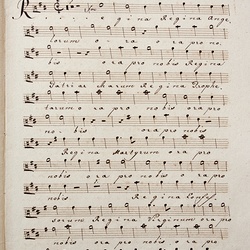 Regina Regina Ange,
lorum o ora pro no,
bis ora pro nobis Regina
Patriarcharum Regina Prophe,
tarum o ra pro nobis ora pro
no- bis ora pro nobis
Regina Martyrum ora pro
nobis ora pro nobis ora pro
nobis Regina Confes
sorum Regina Virginum ora pro
nobis ora pro nobis ora pro